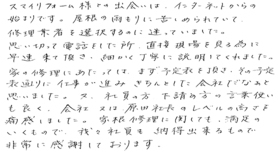 スマイリフォーム様との出会いは、インターネットからの
始まりです。屋根の雨もりに苦しめられていて、
修理業者を選択するのに迷っていました。
思い切って電話をした所、直接現場を見る為に
早速来て頂き、細かく丁寧に説明してくれました。
家の修理にあたっては、まず予定表を頂き、その予定
表通りに仕事が進みきちんとした会社だなあと
思いました。又、社員の方下請の方の言葉使い
も良く、会社又は原田社長のレベルの高さを
痛感しました。家屋修理に関しても、満足の
いくもので、我々社員も納得出来るもので
非常に感謝しております。